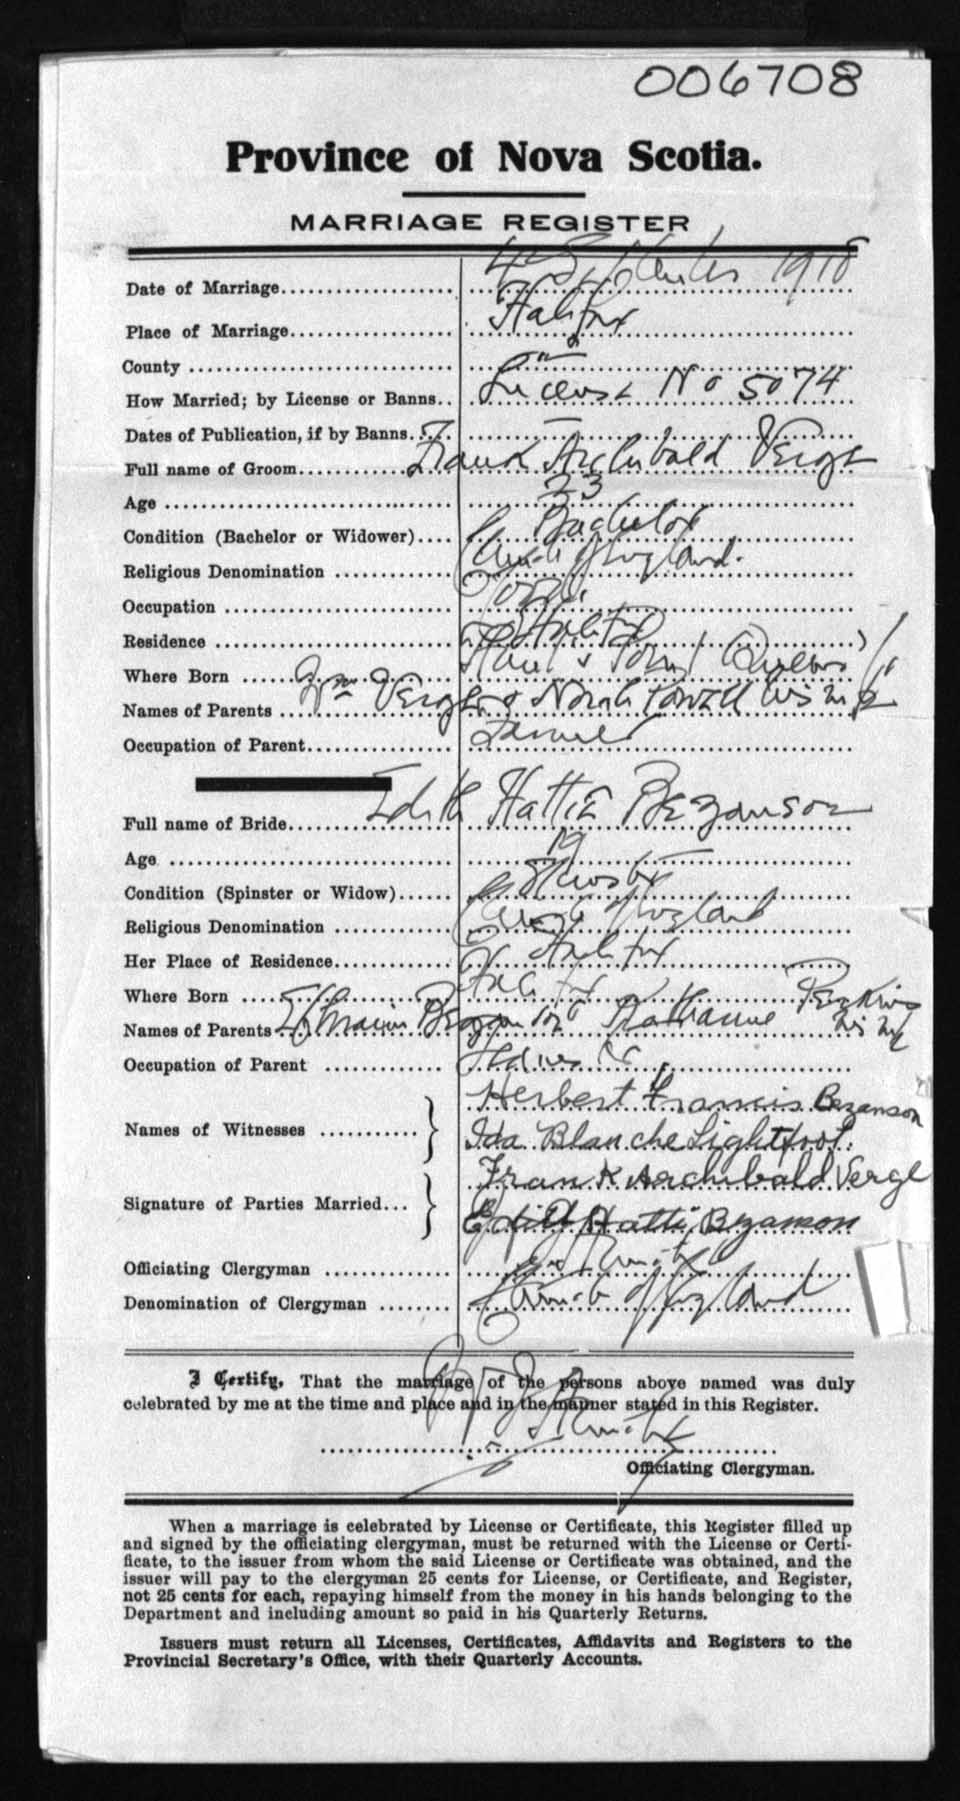 006708
Province of Nova Scotia.
MARRIAGE REGISTER
Date of Marriage 4 September 1918
Place of Marriage Halifax
County
How Married; by License or Banns.. License No 5074
Dates of Publication, if by Banns.
Full name of Groom Frank Archibald Verge
Age 23
Condition (Bachelor or Widower) Bachelor
Religious Denomination Church of England.
Occupation
Residence Halifax
Where Born Port
Names of Parents Wm Verge & Norah his wife
Occupation of Parent
Full name of Bride Edith Hattie Bezanson
Age 19
Condition (Spinster or Widow) Spinster
Religious Denomination Church of England
Her Place of Residence Halifax
Where Born Halifax
Names of Parents Ephraim Bezanson Katharine Perkins his wife
Occupation of Parent
Names of Witnesses Herbert Francis Bezanson
Ida Blanche Lightfoot.
Signature of Parties Married... Frank Archibald Verge
Edith Hattie Bezanson
Officiating Clergyman
Denomination of Clergyman Church of England
I Certify, That the marriage of the persons above named was duly
celebrated by me at the time and place and in the manner stated in this Register.
Officiating Clergyman.
When a marriage is celebrated by License or Certificate, this Register filled up
and signed by the officiating clergyman, must be returned with the License or Certi-
ficate, to the issuer from whom the said License or Certificate was obtained, and the
issuer will pay to the clergyman 25 cents for License, or Certificate, and Register,
not 25 cents for each, repaying himself from the money in his hands belonging to the
Department and including amount so paid in his Quarterly Returns.
Issuers must return all Licenses, Certificates, Affidavits and Registers to the
Provincial Secretary's Office, with their Quarterly Accounts.